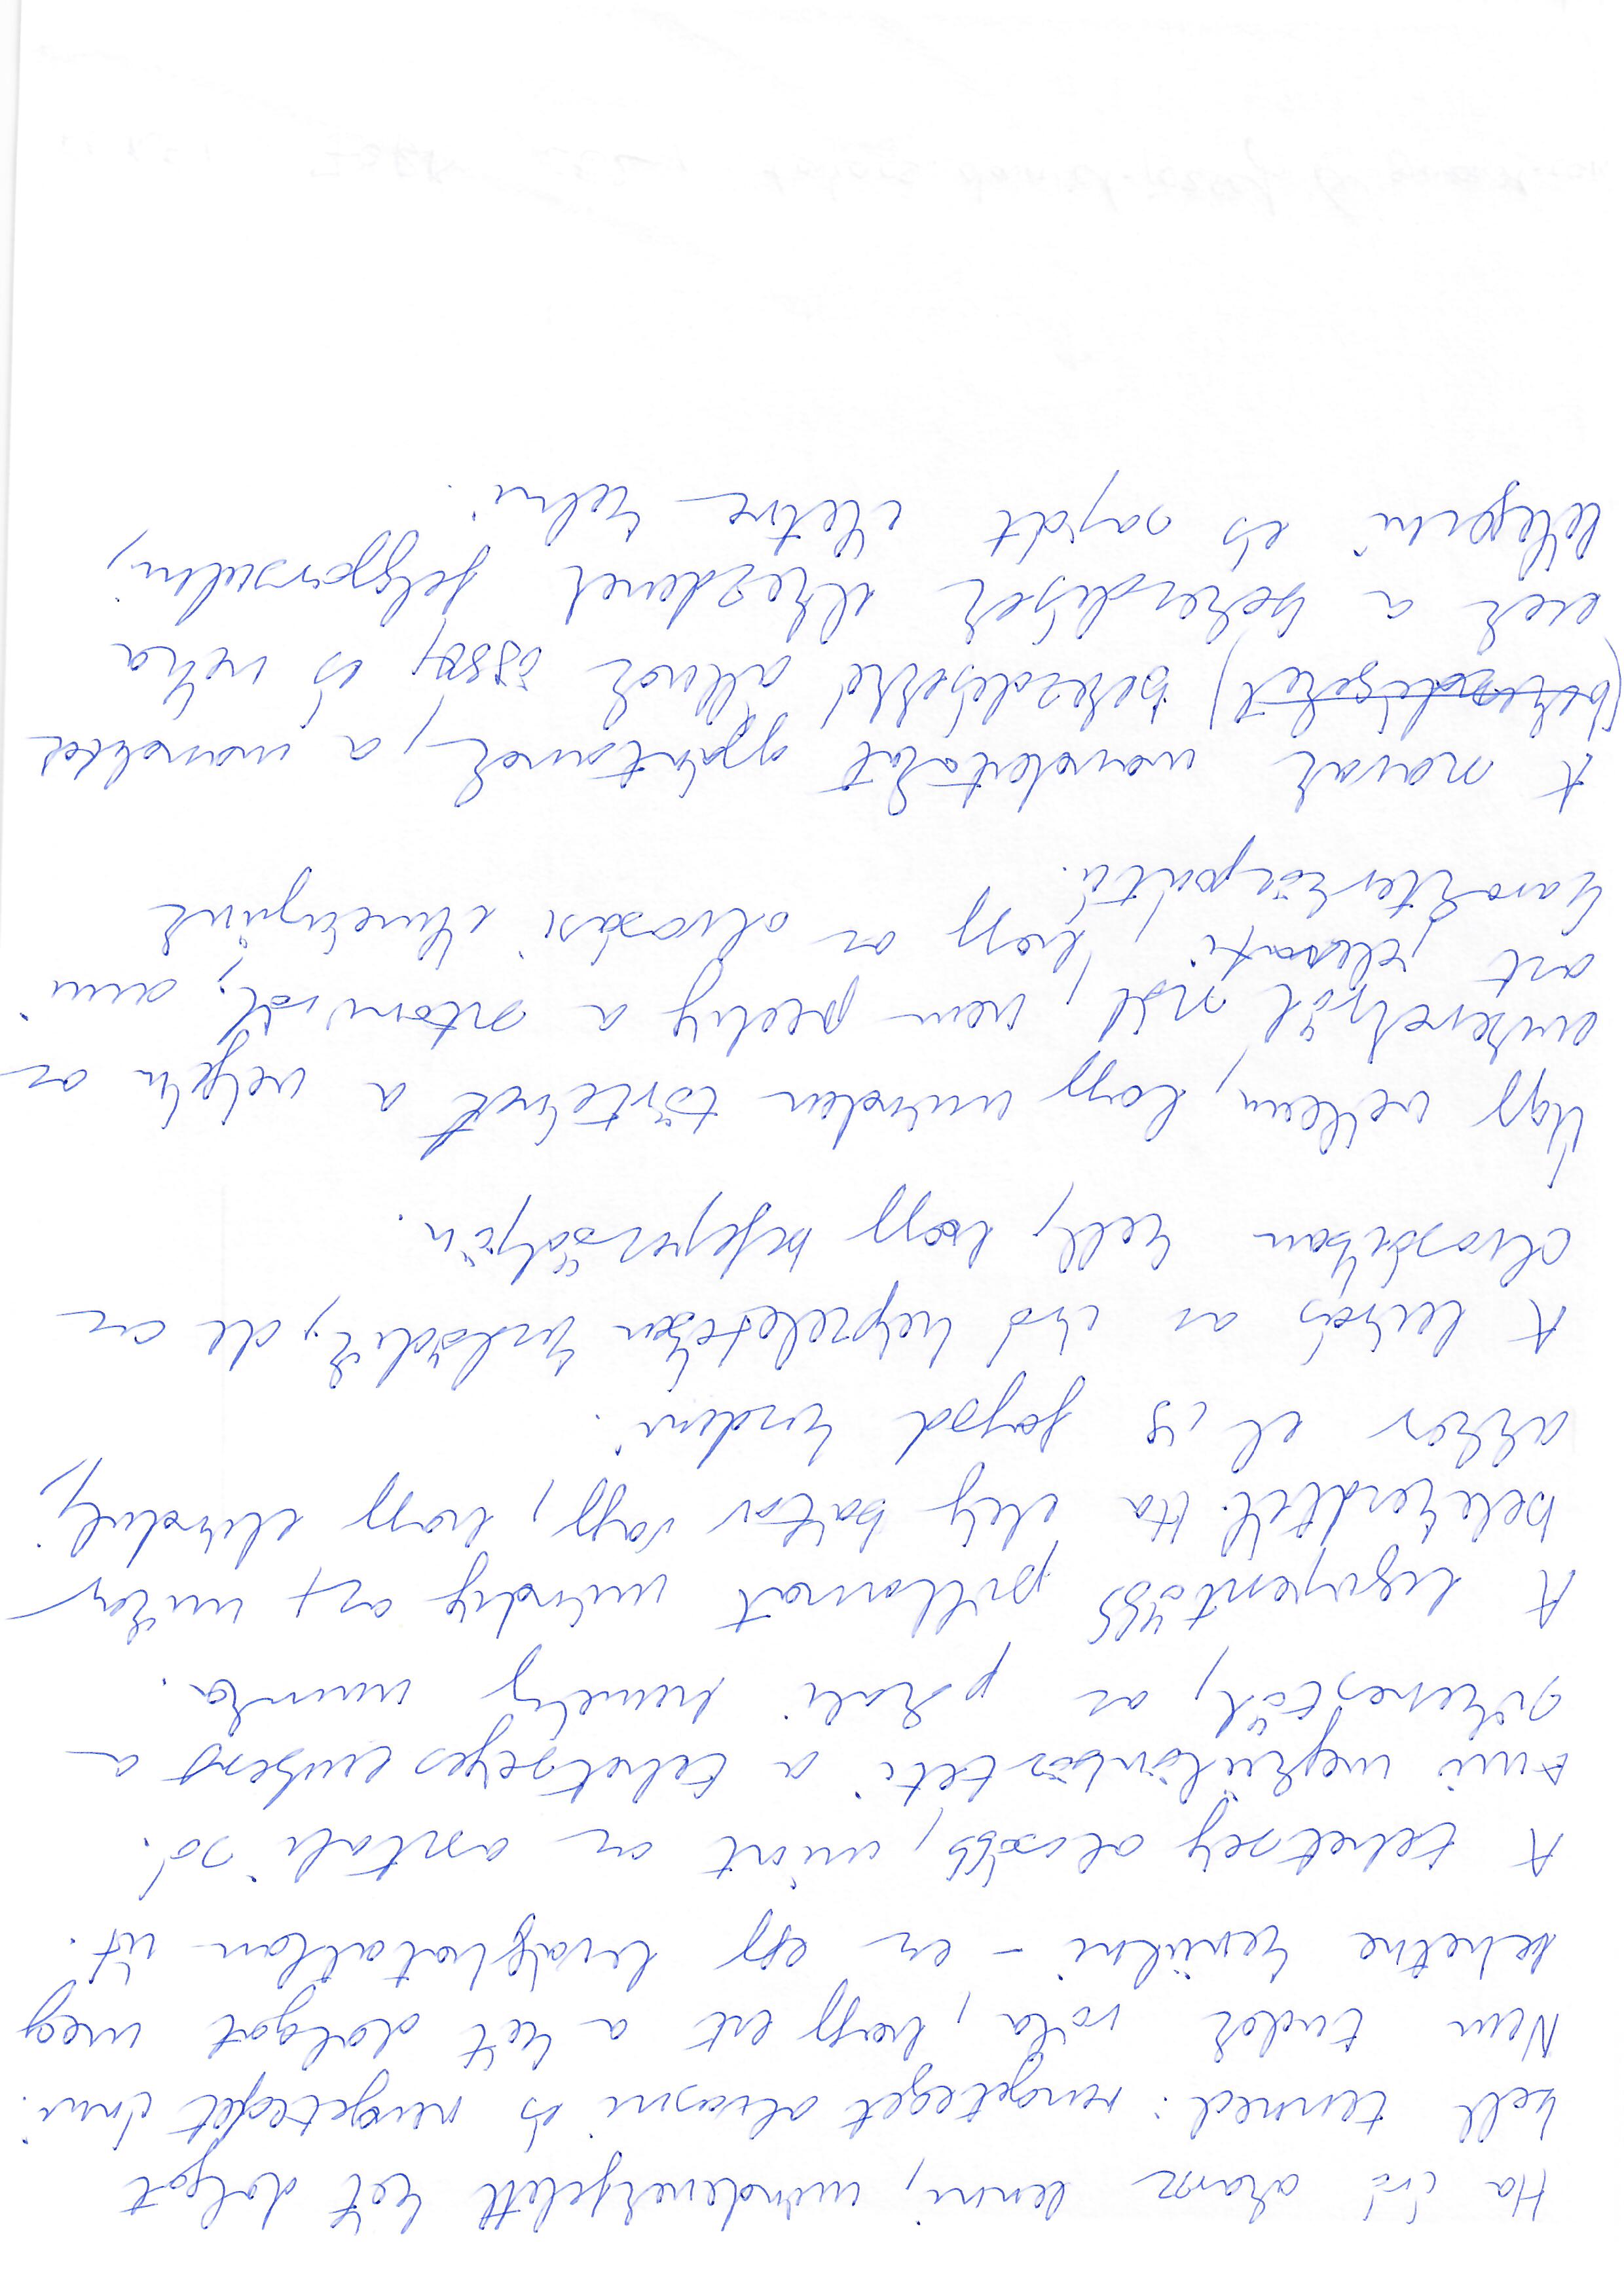 Ha író akarsz lenni, mindenekfelett két dolgot
kell tenned: rengeteget olvasni és rengeteget írni.
Nem tudok róla, hogy ezt a két dolgot meg
lehetne kerülni - ez egy levághatatlan út.
A tehetség olcsóbb, mint az asztali só.
Ami megkülönbözteti a tehetséges embert a
sikerestől, az pokoli kemény munka.
A legijesztőbb pillanat mindig az, mikor
belekezdtél. Ha elég bátor vagy, hogy elindulj,
akkor el is fogod kezdeni.
A leírás az író képzeletében kezdődik, de az
olvasóéban kell, hogy befejeződjön.
Úgy vélem, hogy minden történet a végén az
emberekről szól, nem pedig a sztoriról, ami
azt jelenti, hogy az olvasási élményünk
karakterközpontú.
A szavak mondatokat gyártanak, a mondatok
(bekezdéseket) bekezdésekké állnak össze, és néha
ezek a bekezdések elkezdenek felgyorsulni,
lélegezni és saját életre kelni.